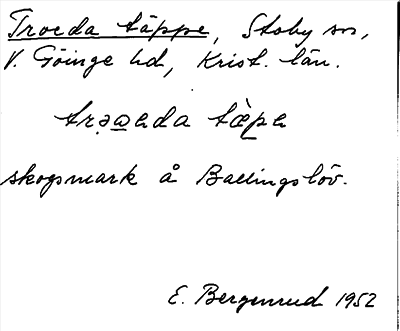 Troeda täppe, Stoby sn,
V. Göinge hd, Krist. län.
trəweda tæ̀pe
skogsmark å Ballingslöv.
E. Bergenrud 1952